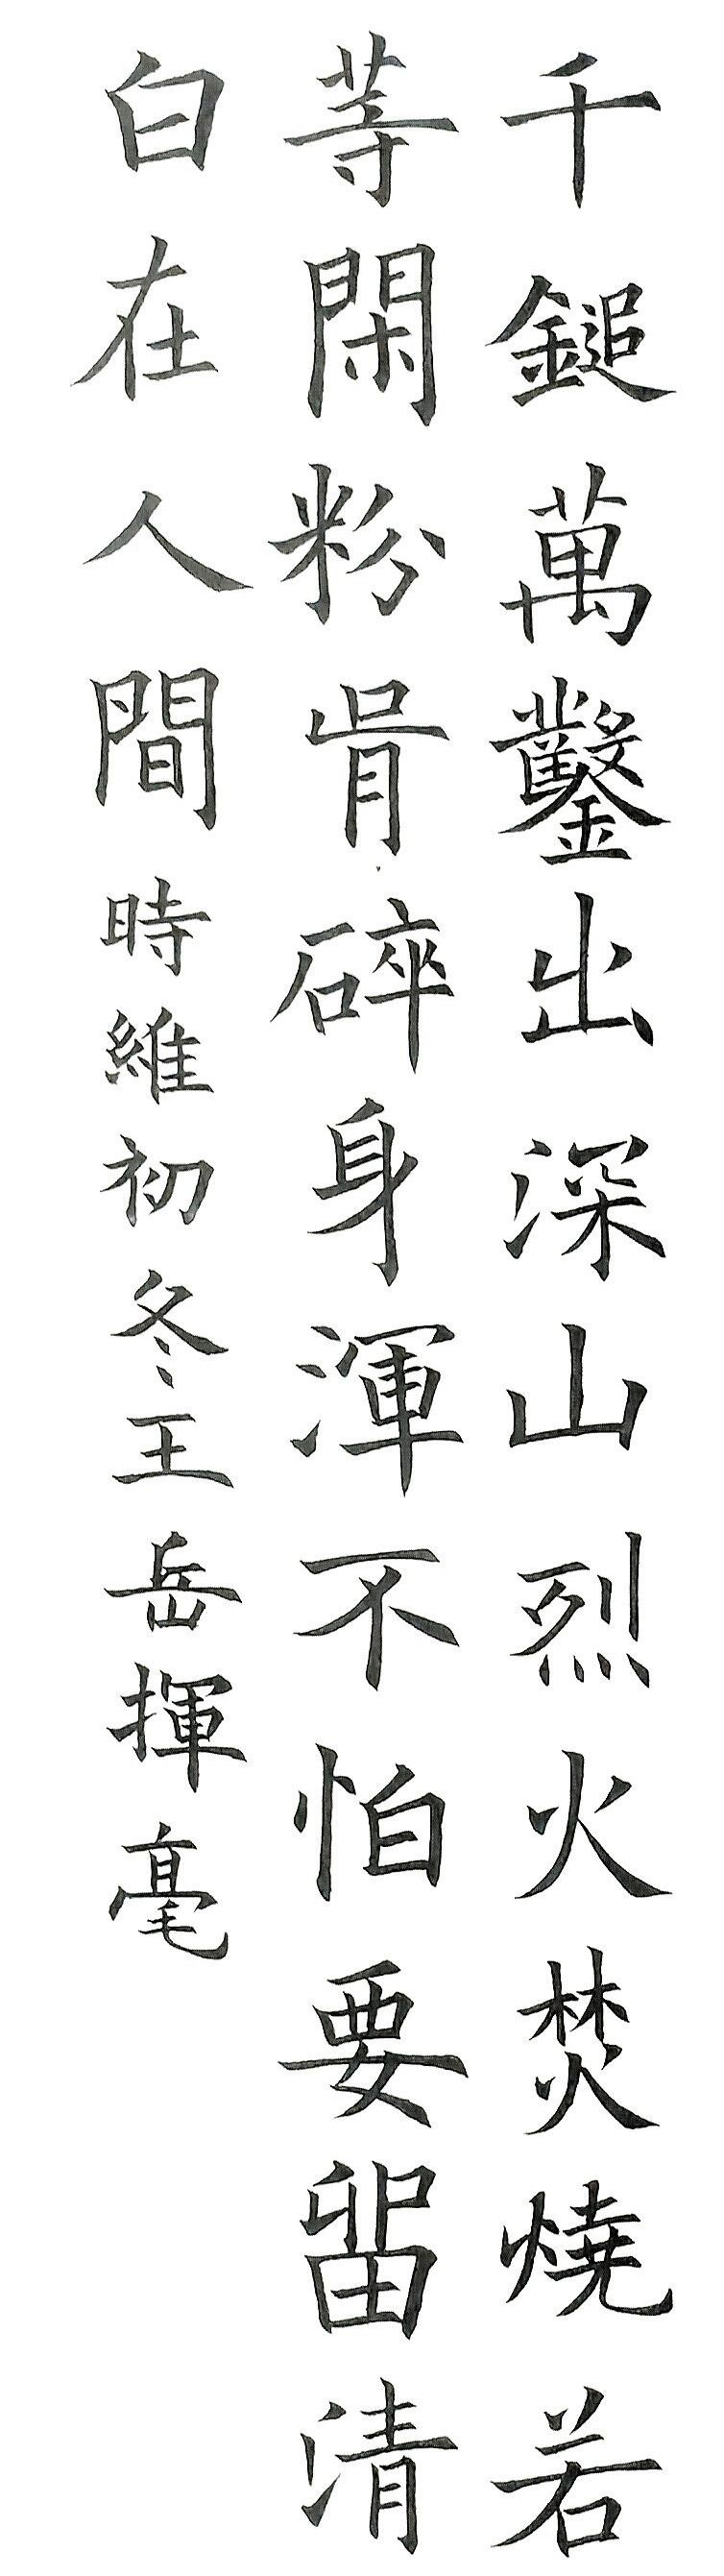 千鎚萬鑿出深山烈火焚燒若
等閑粉骨碎身渾不怕要留清
白在人間時維初冬王岳揮毫